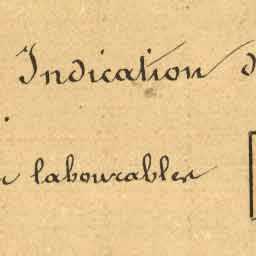 Indication d
labourables